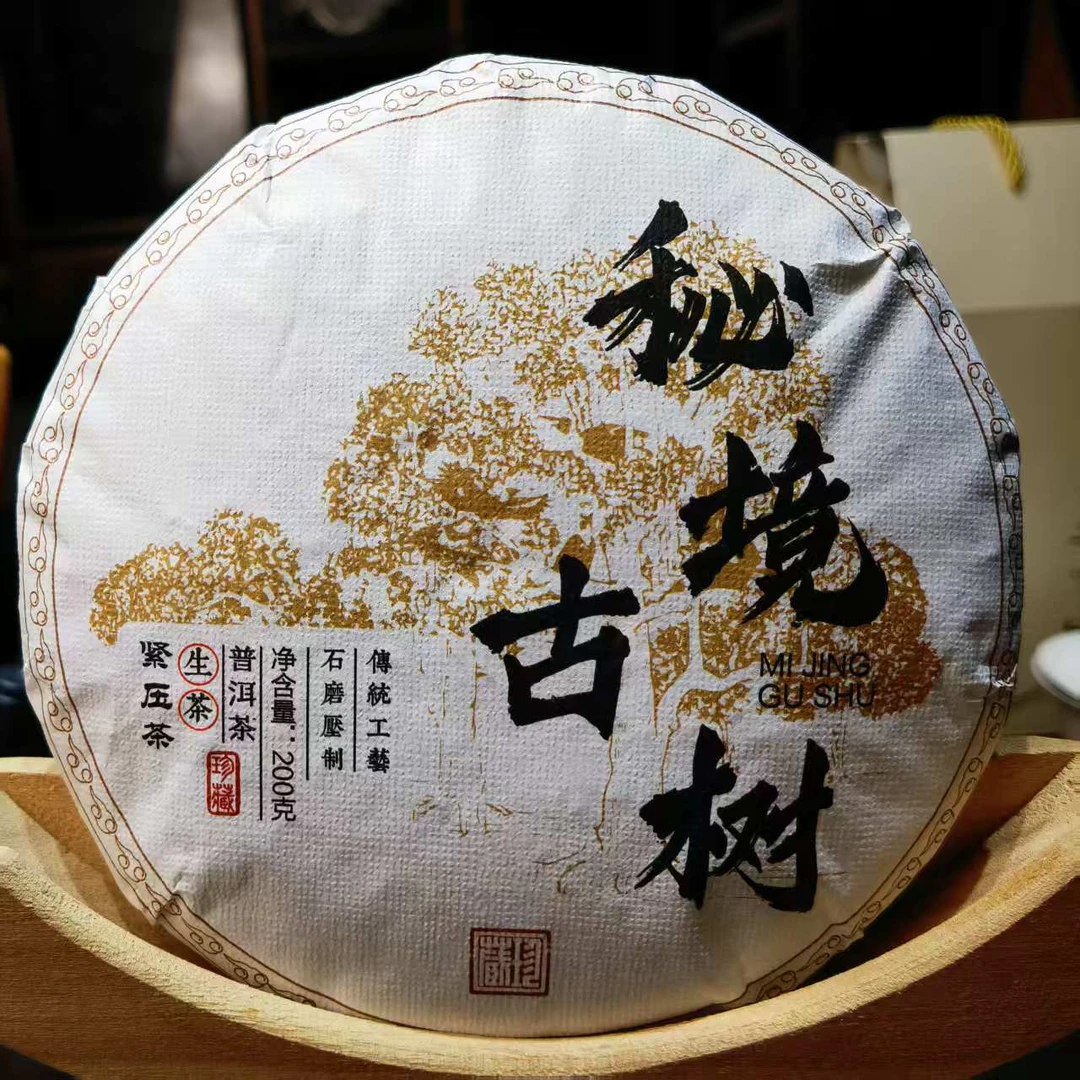 秘境
古树
MI JING
GU SHU
傳統工藝
石磨壓制
净含量：200克
普洱茶
珍藏
生茶
紧压茶
珍藏